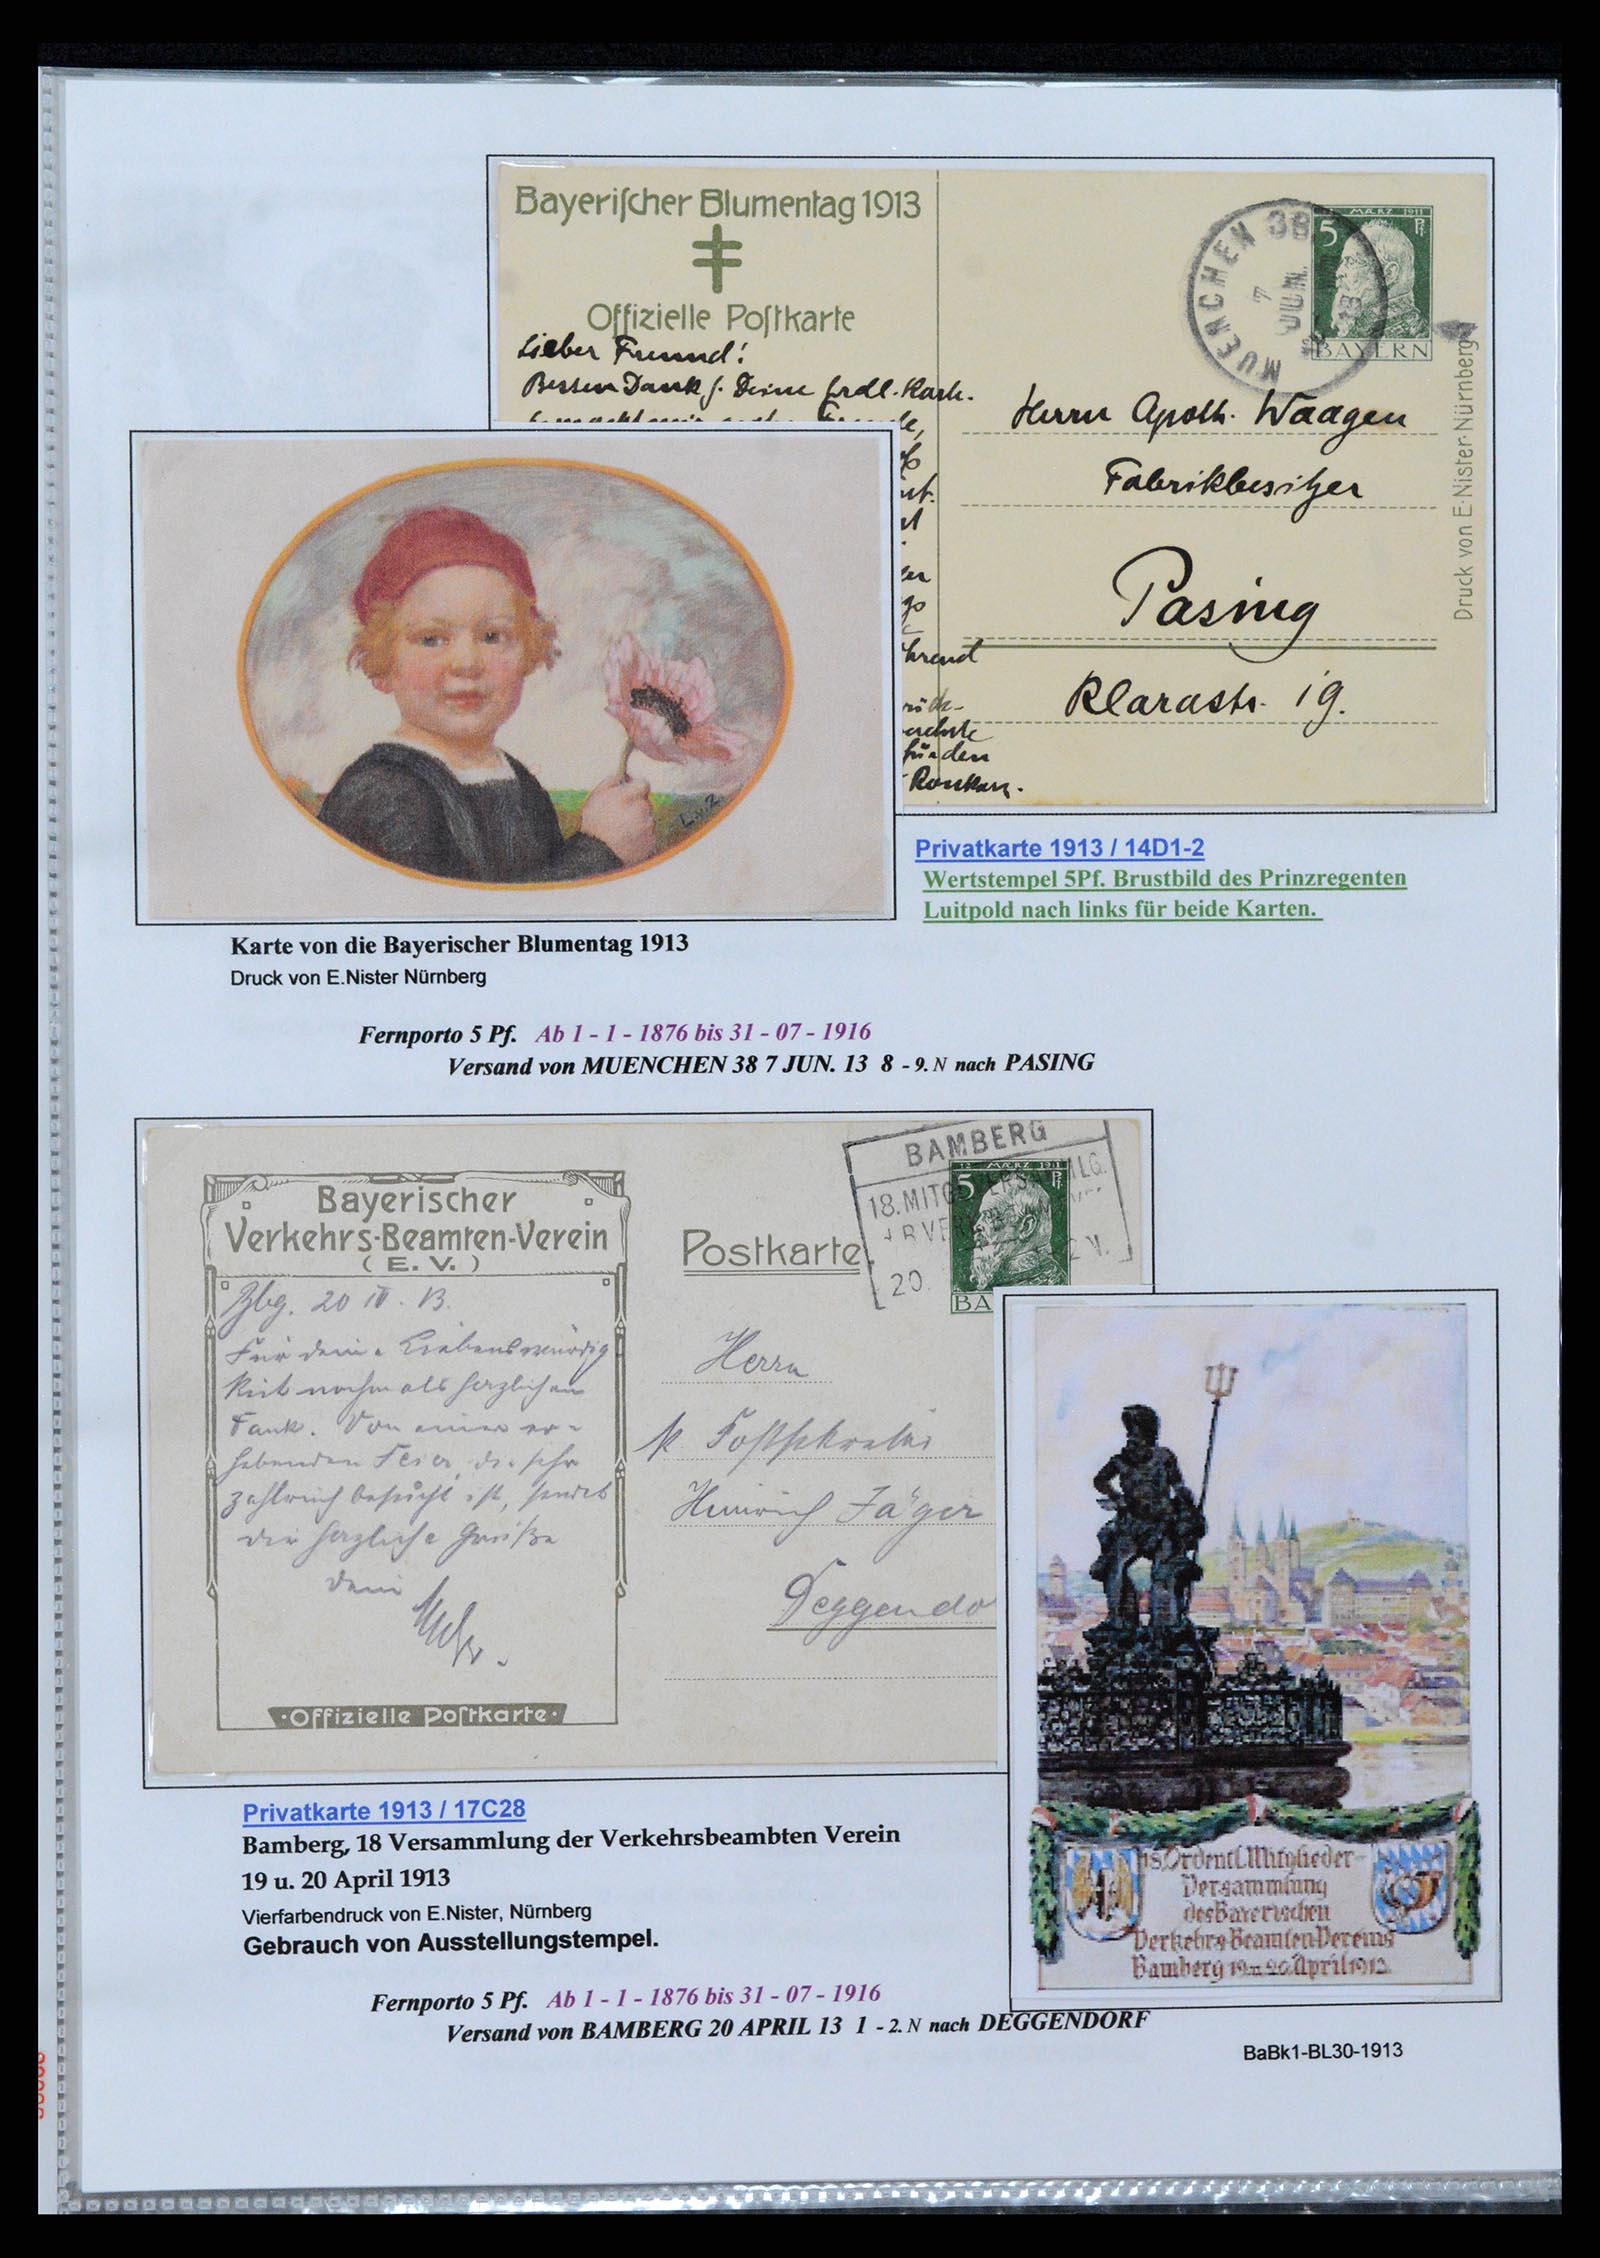 Bayeriſcher Blumentag 1913
Offizielle Poſtkarte
Lieber Freund!
Besten Dank f. Deine frdl. Karte.
MUENCHEN 38
7
JUN.
13
12 MÆRZ 1911
5 Pf
BAYERN
Herrn Apoth. Waagen
Fabrikbesitzer
Pasing
Klarastr. 19.
Druck von E. Nister Nürnberg
L.v.Z.
Privatkarte 1913 / 14D1-2
Wertstempel 5Pf. Brustbild des Prinzregenten
Luitpold nach links für beide Karten.
Karte von die Bayerischer Blumentag 1913
Druck von E.Nister Nürnberg
Fernporto 5 Pf. Ab 1 - 1 - 1876 bis 31 - 07 - 1916
Versand von MUENCHEN 38 7 JUN. 13 8 - 9. N nach PASING
Bayerischer
Verkehrs-Beamten-Verein
( E. V. )
Postkarte
BAMBERG
18. MITGL
20.
12 MÆRZ 1911
5 Pf
BA
Bbg. 20 IV. 13.
Für deine Liebenswürdig
keit nochmals herzlichen
Dank. Von einer er-
hebenden Feier, die sehr
zahlreich besucht ist, sendet
dir herzliche Grüße
dein
·Offizielle Poſtkarte·
Herrn
k. Postsekretär
Heinrich Jäger
Deggendo
18. Ordentl. Mitglieder-
Versammlung
des Bayerischen
Verkehrs-Beamten-Vereins
Bamberg 19. u. 20. April 1913.
Privatkarte 1913 / 17C28
Bamberg, 18 Versammlung der Verkehrsbeambten Verein
19 u. 20 April 1913
Vierfarbendruck von E.Nister, Nürnberg
Gebrauch von Ausstellungstempel.
Fernporto 5 Pf. Ab 1 - 1 - 1876 bis 31 - 07 - 1916
Versand von BAMBERG 20 APRIL 13 1 - 2. N nach DEGGENDORF
BaBk1-BL30-1913